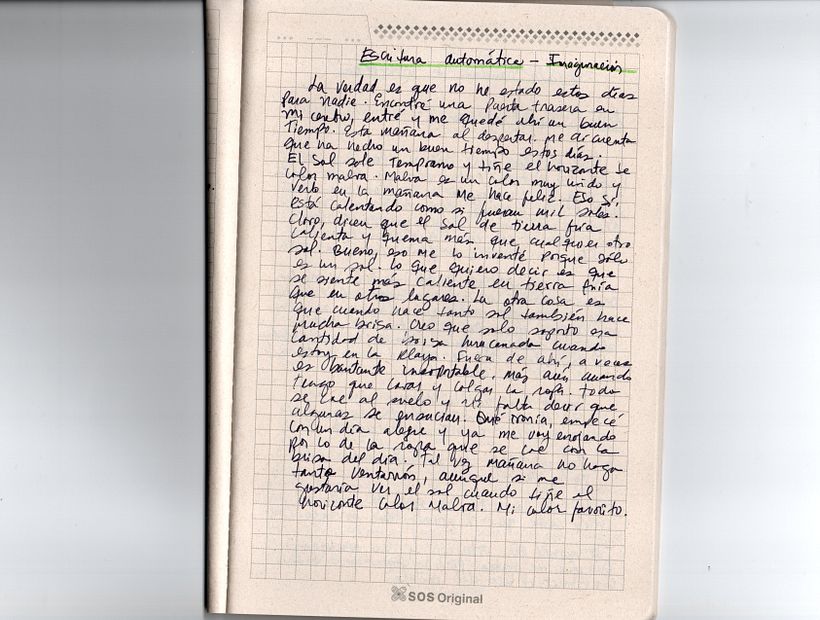 Escritura automática - Imaginación
La verdad es que no he estado estos días
para nadie. Encontré una puerta trasera en
mi centro, entré y me quedé ahí un buen
tiempo. Esta mañana al despertar me di cuenta
que ha hecho un buen tiempo estos días.
El sol sale temprano y tiñe el horizonte de
color malva. Malva es un color muy lindo y
verlo en la mañana me hace feliz. Eso sí,
está calentando como si fueran mil soles.
Claro, dicen que el sol de tierra fría
calienta y quema más que cualquier otro
sol. Bueno, eso me lo inventé porque sólo
es un sol. Lo que quiero decir es que
se siente más caliente en tierra fría
que en otros lugares. La otra cosa es
que cuando hace tanto sol también hace
mucha brisa. Creo que solo soporto esa
cantidad de brisa huracanada cuando
estoy en la playa. Fuera de ahí, a veces
es bastante insoportable. Más aún cuando
tengo que lavar y colgar la ropa. Todo
se cae al suelo y ni falta decir que
algunas se ensucian. Qué ironía, empecé
con un día alegre y ya me voy enojando
por lo de la ropa que se cae con la
brisa del día. Tal vez mañana no haga
tanto ventarrón, aunque si me
gustaría ver el sol cuando tiñe el
horizonte color malva. Mi color favorito.
SOS Original